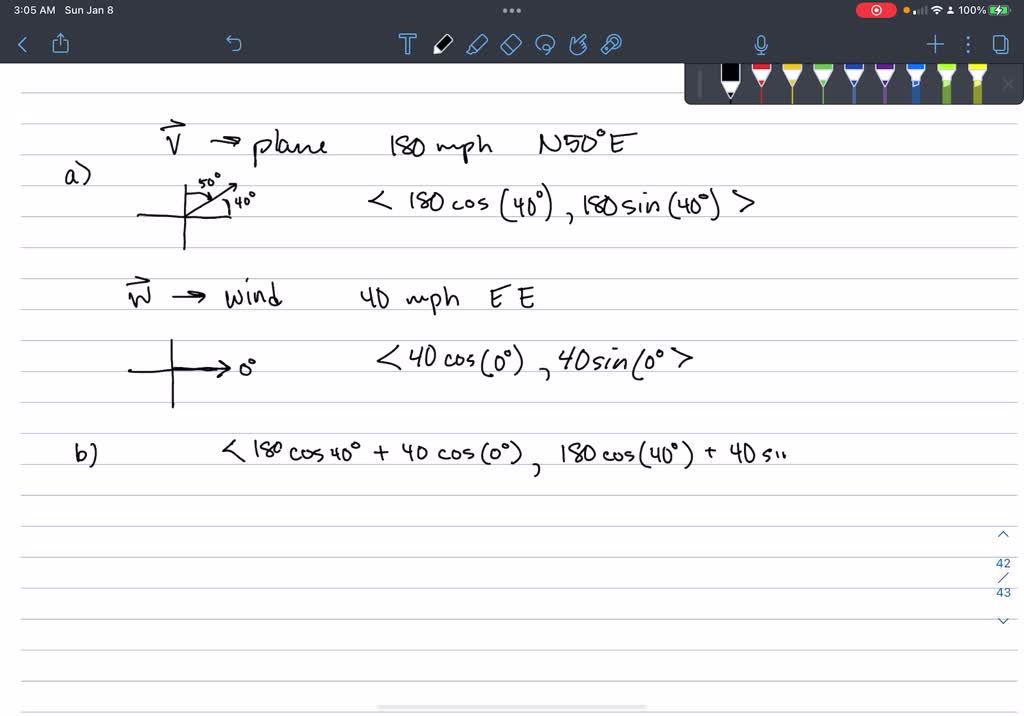 3:05 AM Sun Jan 8
100%
T
V → plane 180 mph N50°E
a)
50°
40°
< 180 cos (40°), 180 sin (40°) >
W → wind 40 mph E E
0°
< 40 cos (0°), 40 sin (0° >
b) < 180 cos 40° + 40 cos (0°), 180 cos (40°) + 40 si
42
/
43